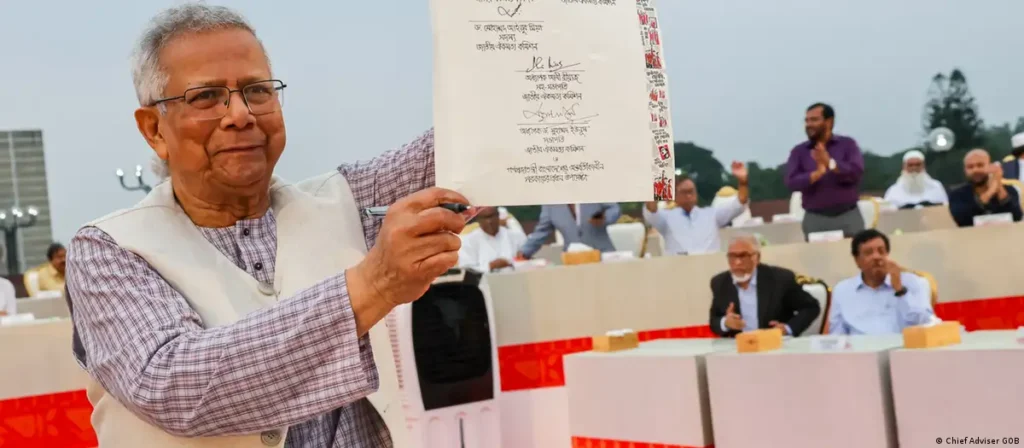 জাতীয় ঐকমত্য কমিশন
সদস্য
জাতীয় ঐকমত্য কমিশন
অধ্যাপক আলী রীয়াজ
সহ-সভাপতি
জাতীয় ঐকমত্য কমিশন
অধ্যাপক মুহাম্মদ ইউনূস
সভাপতি
জাতীয় ঐকমত্য কমিশন
ও
গণপ্রজাতন্ত্রী বাংলাদেশের অন্তর্বর্তীকালীন
সরকারের প্রধান উপদেষ্টা
© Chief Adviser GOB